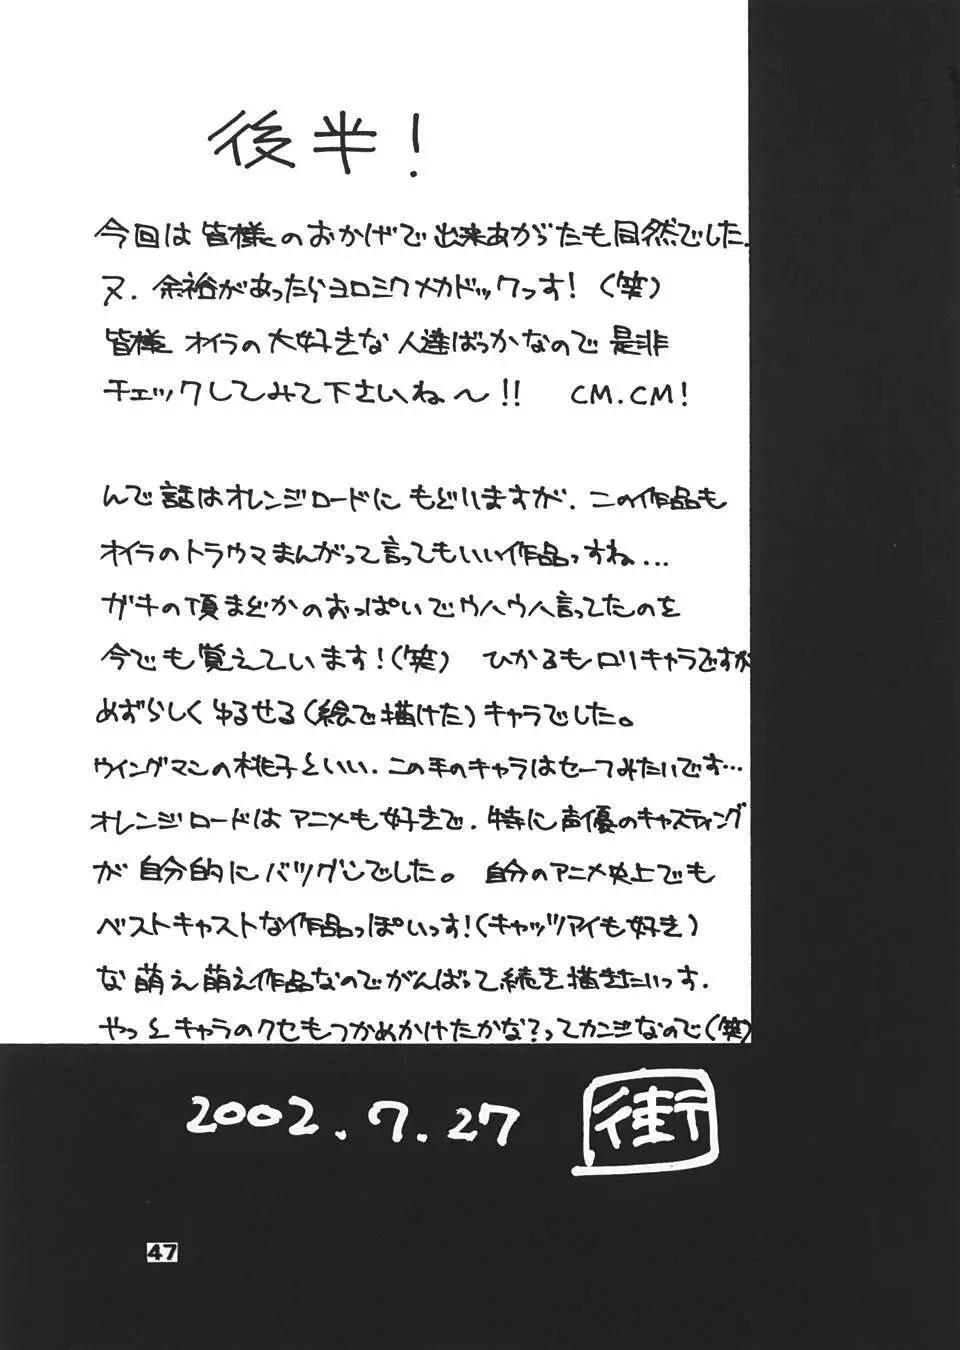 後半!
今回は皆様のおかげで出来あがったも同然でした。
又、余裕があったらヨロシクメカドックっす!(笑)
皆様オイラの大好きな人達ばっかなので是非
チェックしてみて下さいね〜!! CM.CM!
んで話はオレンジロードにもどいますが、この作品も
オイラのトラウマまんがって言ってもいい作品っすね...
ガキの頃まどかのおっぱいでウハウハ言ってたのを
今でも覚えています!(笑) ひかるもロリキャラですが
めずらしくゆるせる(絵で描けた)キャラでした。
ウイングマンの桃子といい、この手のキャラはセーフみたいです…
オレンジロードはアニメも好きで、特に声優のキャスティング
が自分的にバツグンでした。 自分のアニメ史上でも
ベストキャストな作品っぽいっす!(キャッツアイも好き)
な萌え萌え作品なのでがんばって続き描きたいっす.
やっとキャラのクセもつかめかけたかな?ってカンジなので(笑)
2002.7.27 街
47